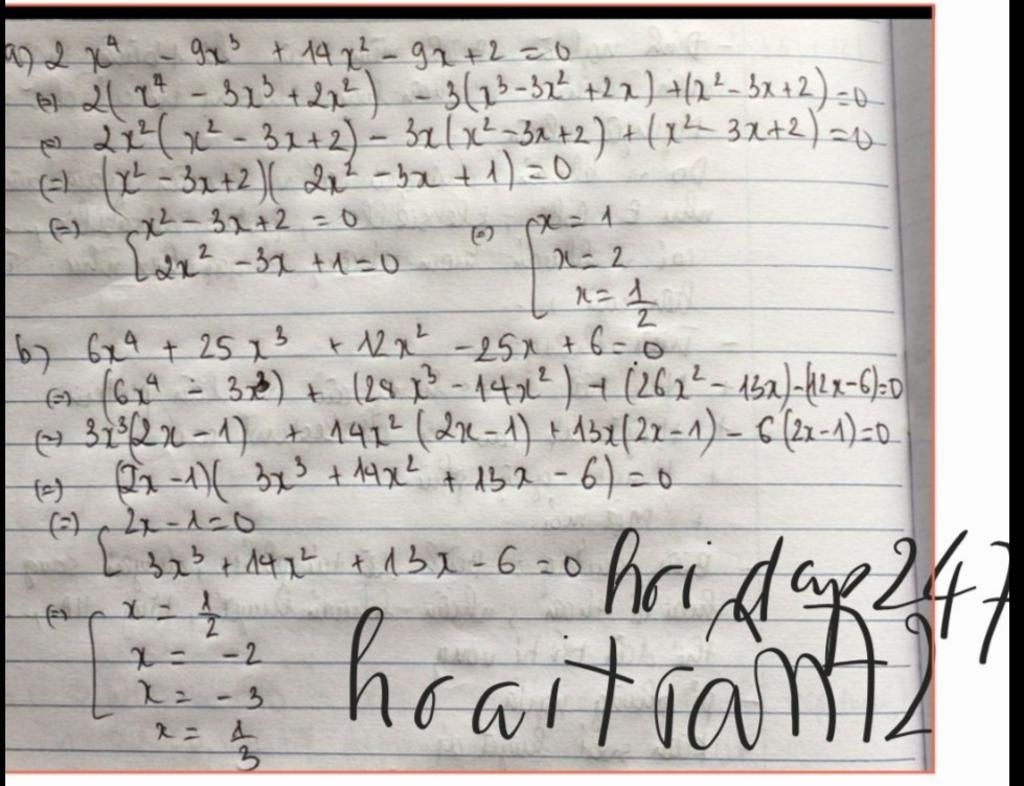 a) 2x⁴ - 9x³ + 14x² - 9x + 2 = 0
(=) 2(x⁴ - 3x³ + 2x²) - 3(x³ - 3x² + 2x) + (x² - 3x + 2) = 0
(=) 2x²(x² - 3x + 2) - 3x(x² - 3x + 2) + (x² - 3x + 2) = 0
(=) (x² - 3x + 2)(2x² - 3x + 1) = 0
(=) [x² - 3x + 2 = 0 (=) [x = 1
2x² - 3x + 1 = 0 x = 2
x = 1/2
b) 6x⁴ + 25x³ + 12x² - 25x + 6 = 0
(=) (6x⁴ - 3x³) + (28x³ - 14x²) + (26x² - 13x) - (12x - 6) = 0
(=) 3x³(2x - 1) + 14x²(2x - 1) + 13x(2x - 1) - 6(2x - 1) = 0
(=) (2x - 1)(3x³ + 14x² + 13x - 6) = 0
(=) [2x - 1 = 0
3x³ + 14x² + 13x - 6 = 0
(=) [x = 1/2
x = -2
x = -3
x = 1/3